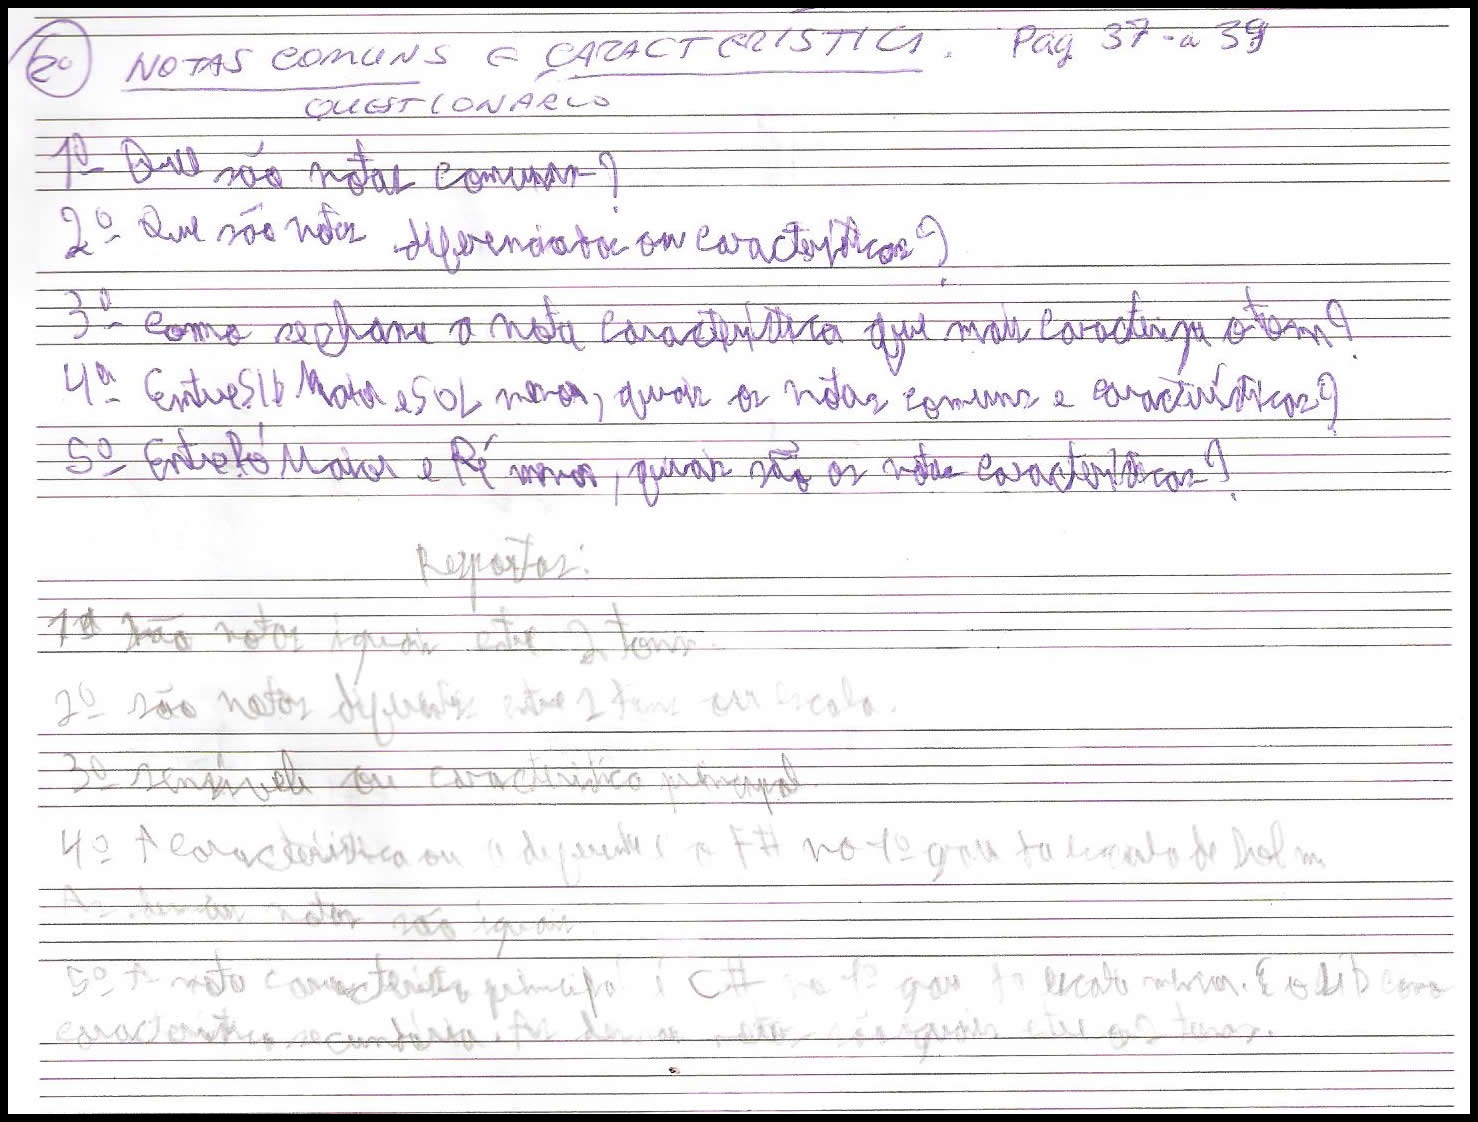 2º NOTAS COMUNS E CARACTERÍSTICA. Pág 37-a 39
QUESTIONÁRIO
1º- Que são notas comuns-?
2º- Que são notas diferenciadas ou características?
3º- Como se chama a nota característica que mais caracteriza o tom?
4ª- Entre SIb Maior e SOL menor, quais as notas comuns e características?
5º- Entre Maior e Ré menor, quais são as notas características?
Respostas:
1ª São notas iguais entre 2 tons.
2º- são notas diferentes entre 2 tons ou escala.
3º- sensível ou característica principal
4º- A característica ou a diferente é o F# no 7º grau da escala de Sol m
As demais notas são iguais.
5º- A nota característica principal é C# no 7º grau da escala menor. E o SIb como
característica secundária. As demais notas são iguais entre os tons.